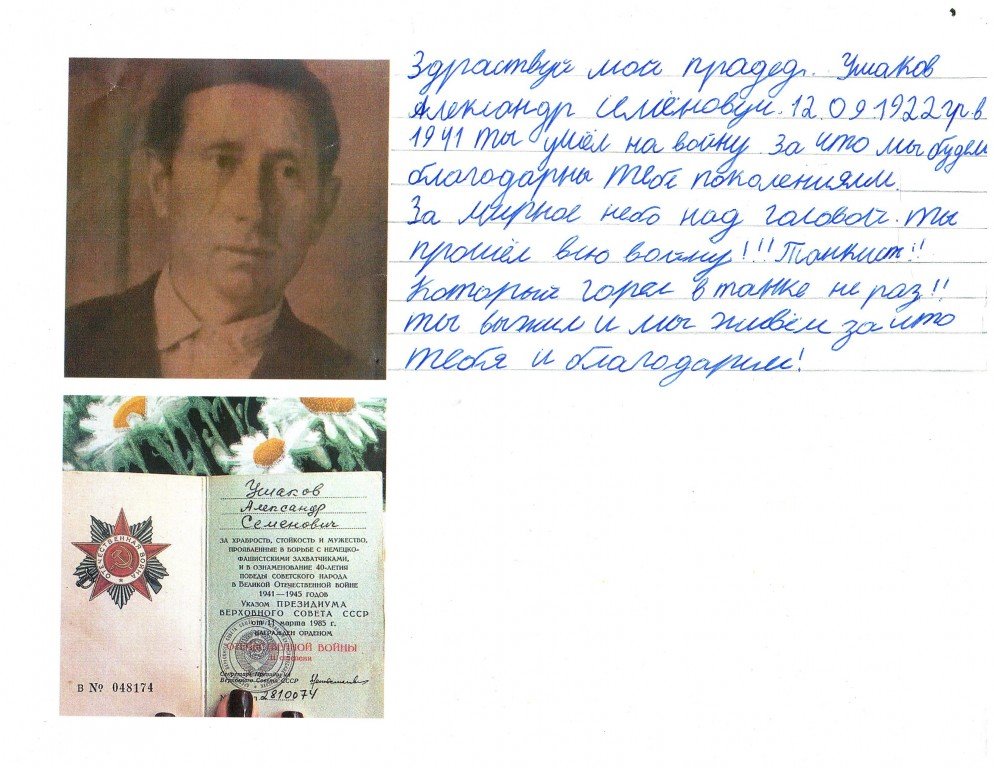 Здраствуй мой прадед. Ушаков
Александр Семёновуй. 12.09.1922 гр. в
1941 ты ушёл на войну за что мы будем
благодарны тебе поколениями.
За мирное небо над головой. ты
прошёл всю войну!!!Танкист!!
Который горел в танке не раз!!
ты выжил и мы живём за что
тебя и благодарим!
Ушаков
Александр
Семенович
ЗА ХРАБРОСТЬ, СТОЙКОСТЬ И МУЖЕСТВО,
ПРОЯВЛЕННЫЕ В БОРЬБЕ С НЕМЕЦКО-
ФАШИСТСКИМИ ЗАХВАТЧИКАМИ,
И В ОЗНАМЕНОВАНИЕ 40-ЛЕТИЯ
ПОБЕДЫ СОВЕТСКОГО НАРОДА
В ВЕЛИКОЙ ОТЕЧЕСТВЕННОЙ ВОЙНЕ
1941—1945 ГОДОВ
УКАЗОМ ПРЕЗИДИУМА
ВЕРХОВНОГО СОВЕТА СССР
от 11 марта 1985 г.
НАГРАЖДЕН ОРДЕНОМ
ОТЕЧЕСТВЕННОЙ ВОЙНЫ
II степени
Секретарь Президиума
Верховного Совета СССР
№ 2810074
ОТЕЧЕСТВЕННАЯ ВОЙНА
В № 048174